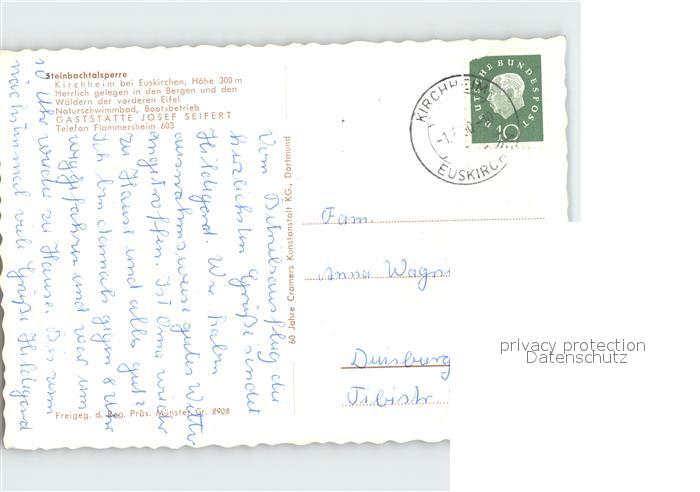 Steinbachtalsperre
Kirchheim bei Euskirchen, Höhe 300 m
Herrlich gelegen in den Bergen und den
Wäldern der vorderen Eifel
Naturschwimmbad, Bootsbetrieb
GASTSTÄTTE JOSEF SEIFERT
Telefon Flammersheim 603
Vom Betriebsausflug die
herzlichsten Grüße sendet
Hildegard. Wir haben
ausnahmsweise gutes Wetter
angetroffen. Ist Oma wieder
zu Hause und alles gut?
Ich bin damals gegen 8 Uhr
weggefahren und war um
10 Uhr wieder zu Hause. Bis zum
nächstenmal viele Grüße Hildegard
Freigeg. d. Reg. Präs. Münster Gr. 2908
60 Jahre Cramers Kunstanstalt KG., Dortmund
KIRCHHEIM
EUSKIRCH
DEUTSCHE BUNDESPOST
10
Fam.
Anna Wagn
Duisburg
Tibistr
privacy protection
Datenschutz